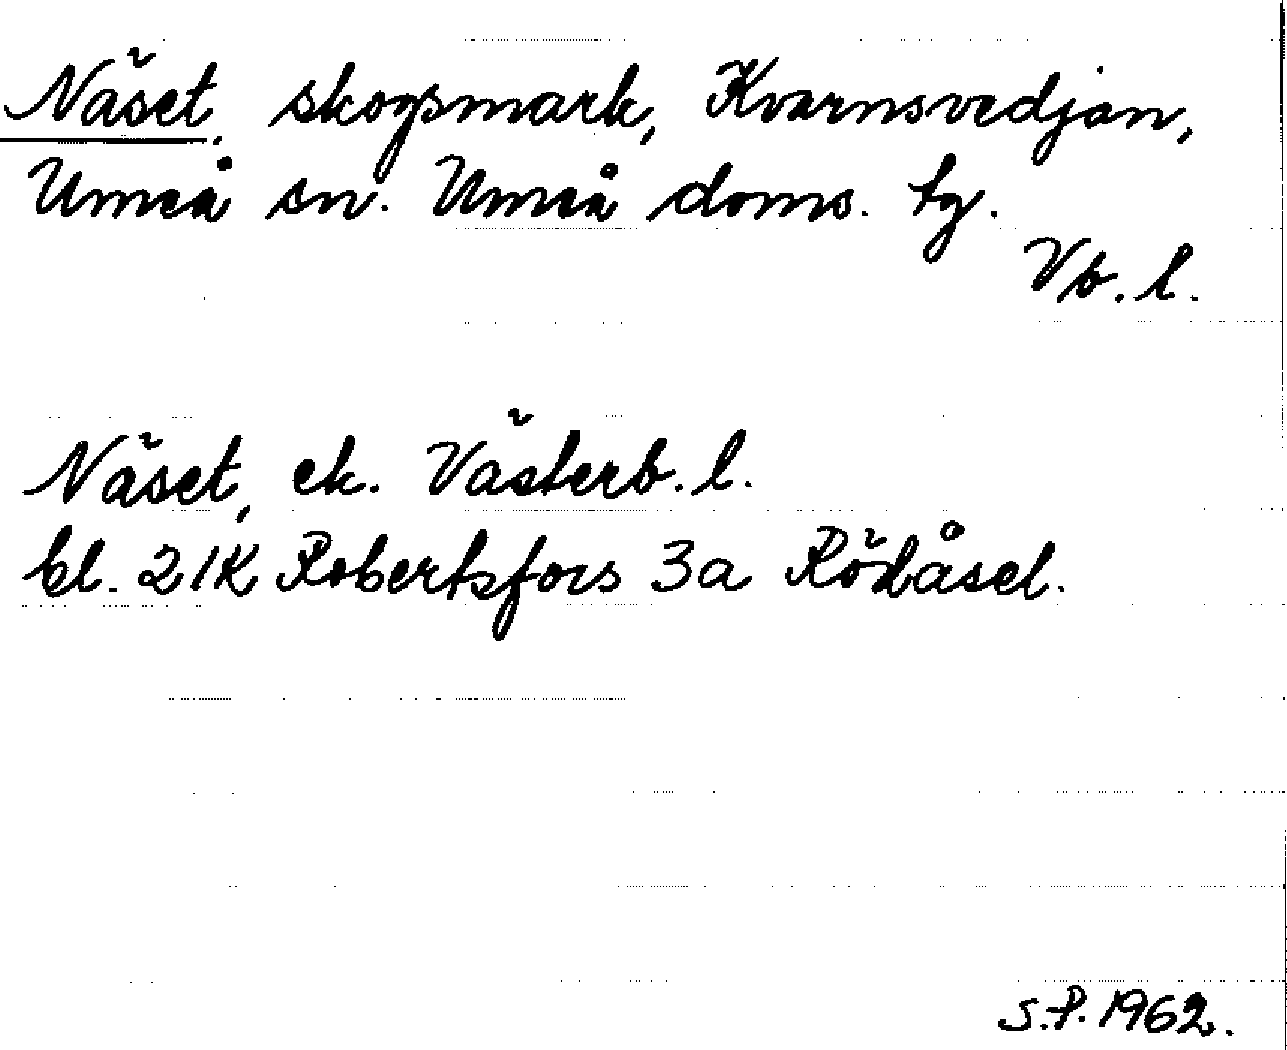 Näset, skogsmark, Kvarnsvedjan,
Umeå sn. Umeå doms. tg.
Vb. l.
Näset, ek. Västerb. l.
bl. 21K Robertsfors 3a Rödåsel.
S.P. 1962.